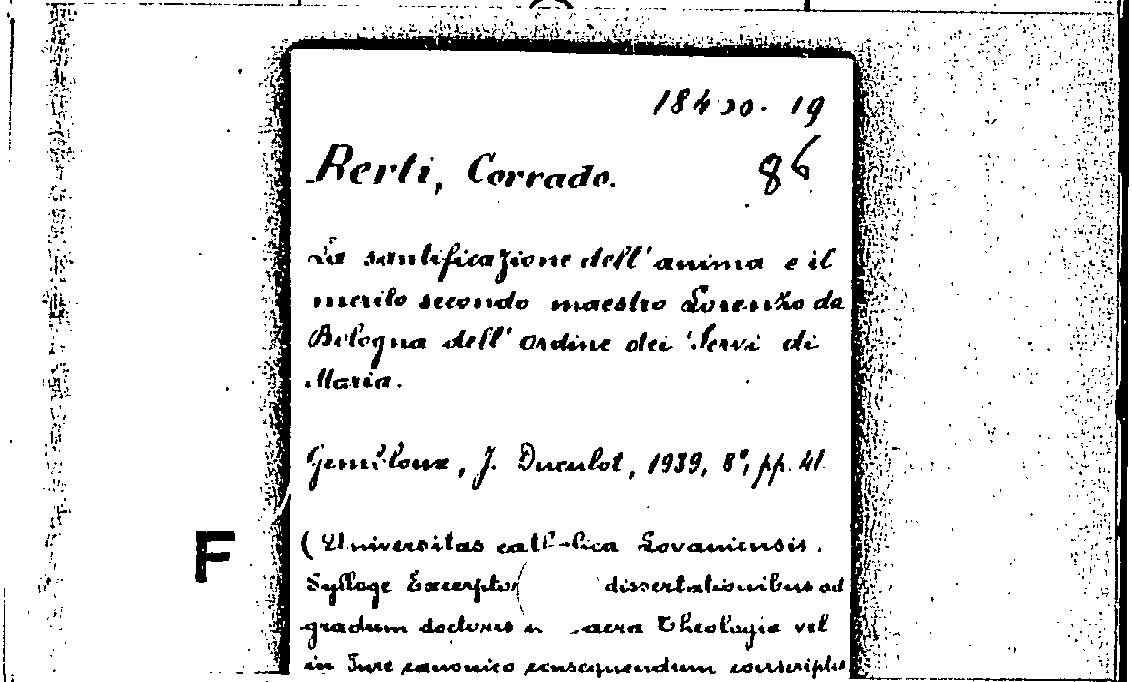 18400. 19
Berti, Corrado.
86
La santificazione dell'anima e il
merito secondo maestro Lorenzo da
Bologna dell'Ordine dei Servi di
Maria.
Gembloux, J. Duculot, 1939, 8°, pp. 41
(Universitas catholica Lovaniensis.
Sylloge Excerptor dissertationibus ad
gradum doctoris in sacra Theologia vel
in Jure canonico consequendum conscriptis
F